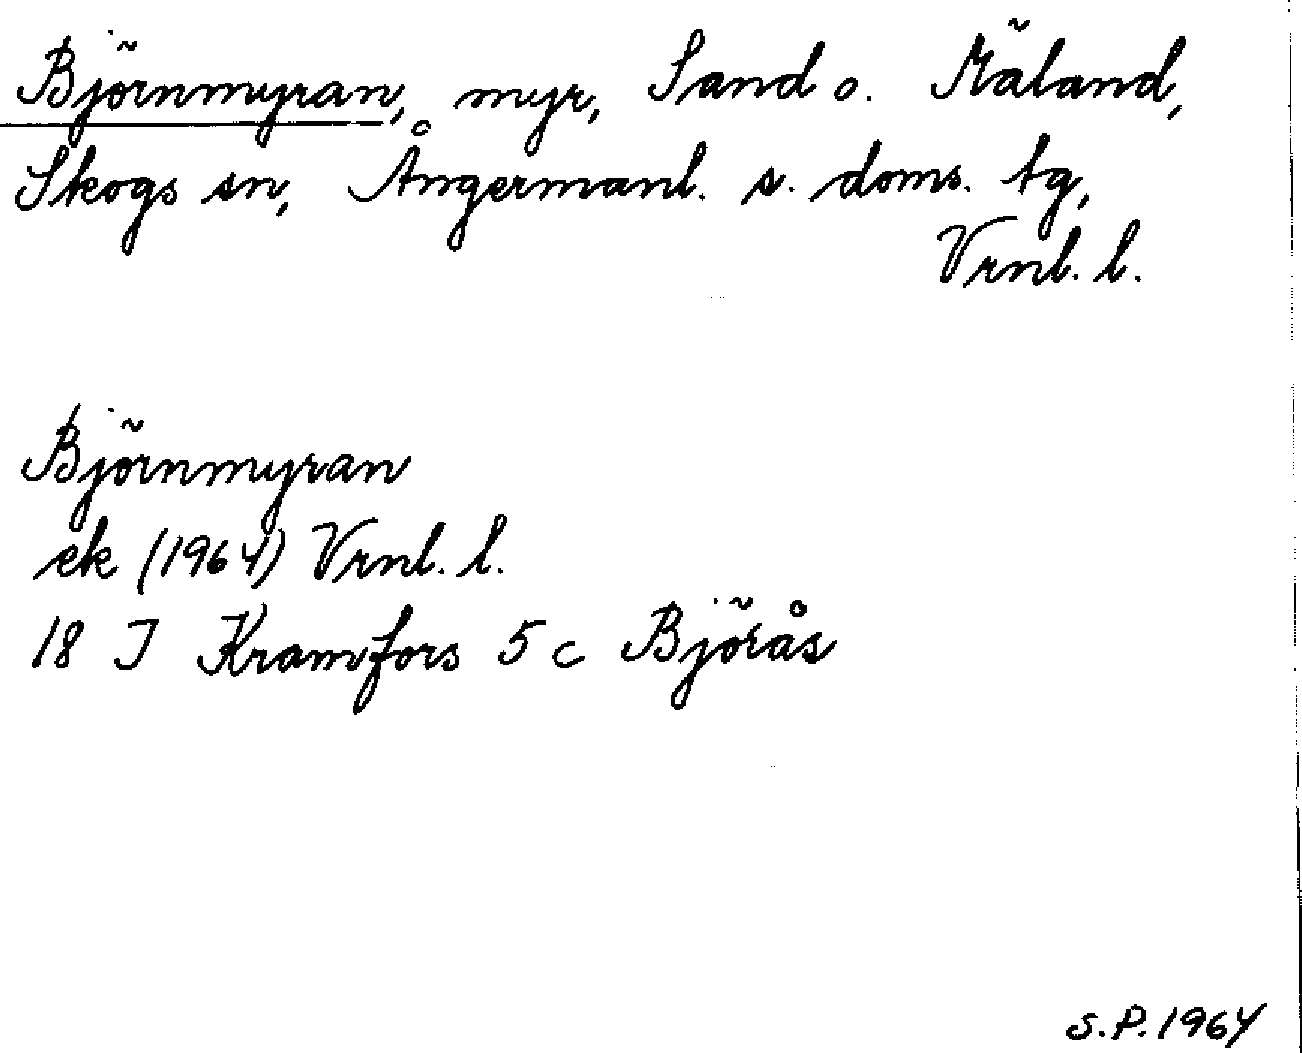 Björnmyran, myr, Sand o. Mäland,
Skogs sn, Ångermanl. s. doms. tg,
Vrnl. l.
Björnmyran
ek (1964) Vrnl. l.
18 J Kramfors 5 c Björås
S.P. 1964